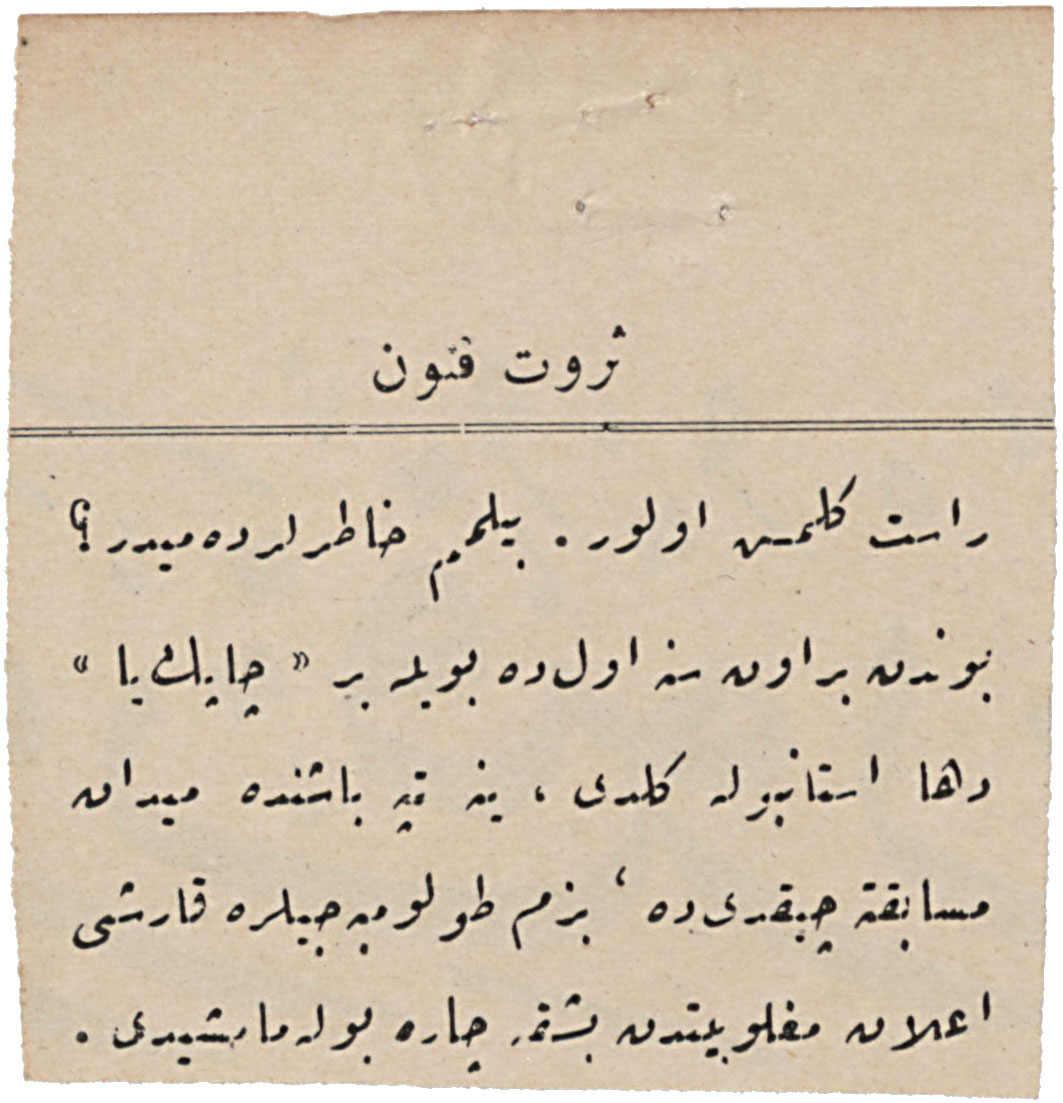 ثروت فنون
راست كلمس اولور . بيلمم خاطرلرده‌ميدر ؟
بوندن بر اون سنه اول ده بويله بر « چاپك پا »
دها استانبوله كلدى ، ينه تپه باشنده ميدان
مسابقه‌يه چيقدى ده ، بزم طولومبه‌جيلره قارشى
اعلان مغلوبيتدن بشقه چاره بوله‌مامشيدى .